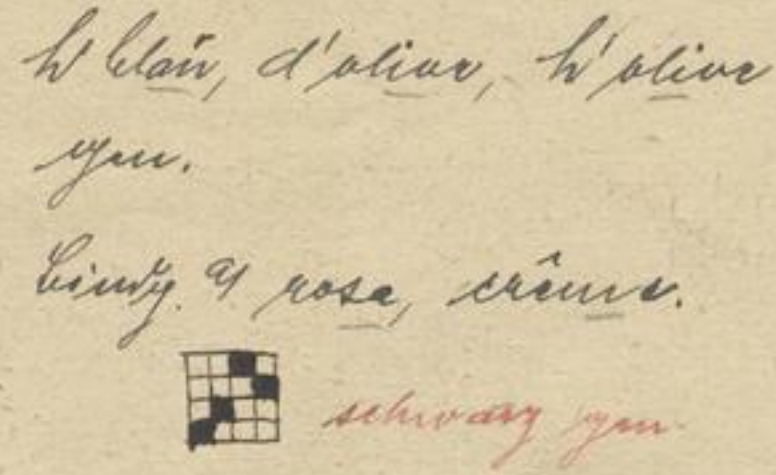 h'blau, d'olive, h'olive
gen.
Bindg. 9 rosa, crême.
schwarz gen